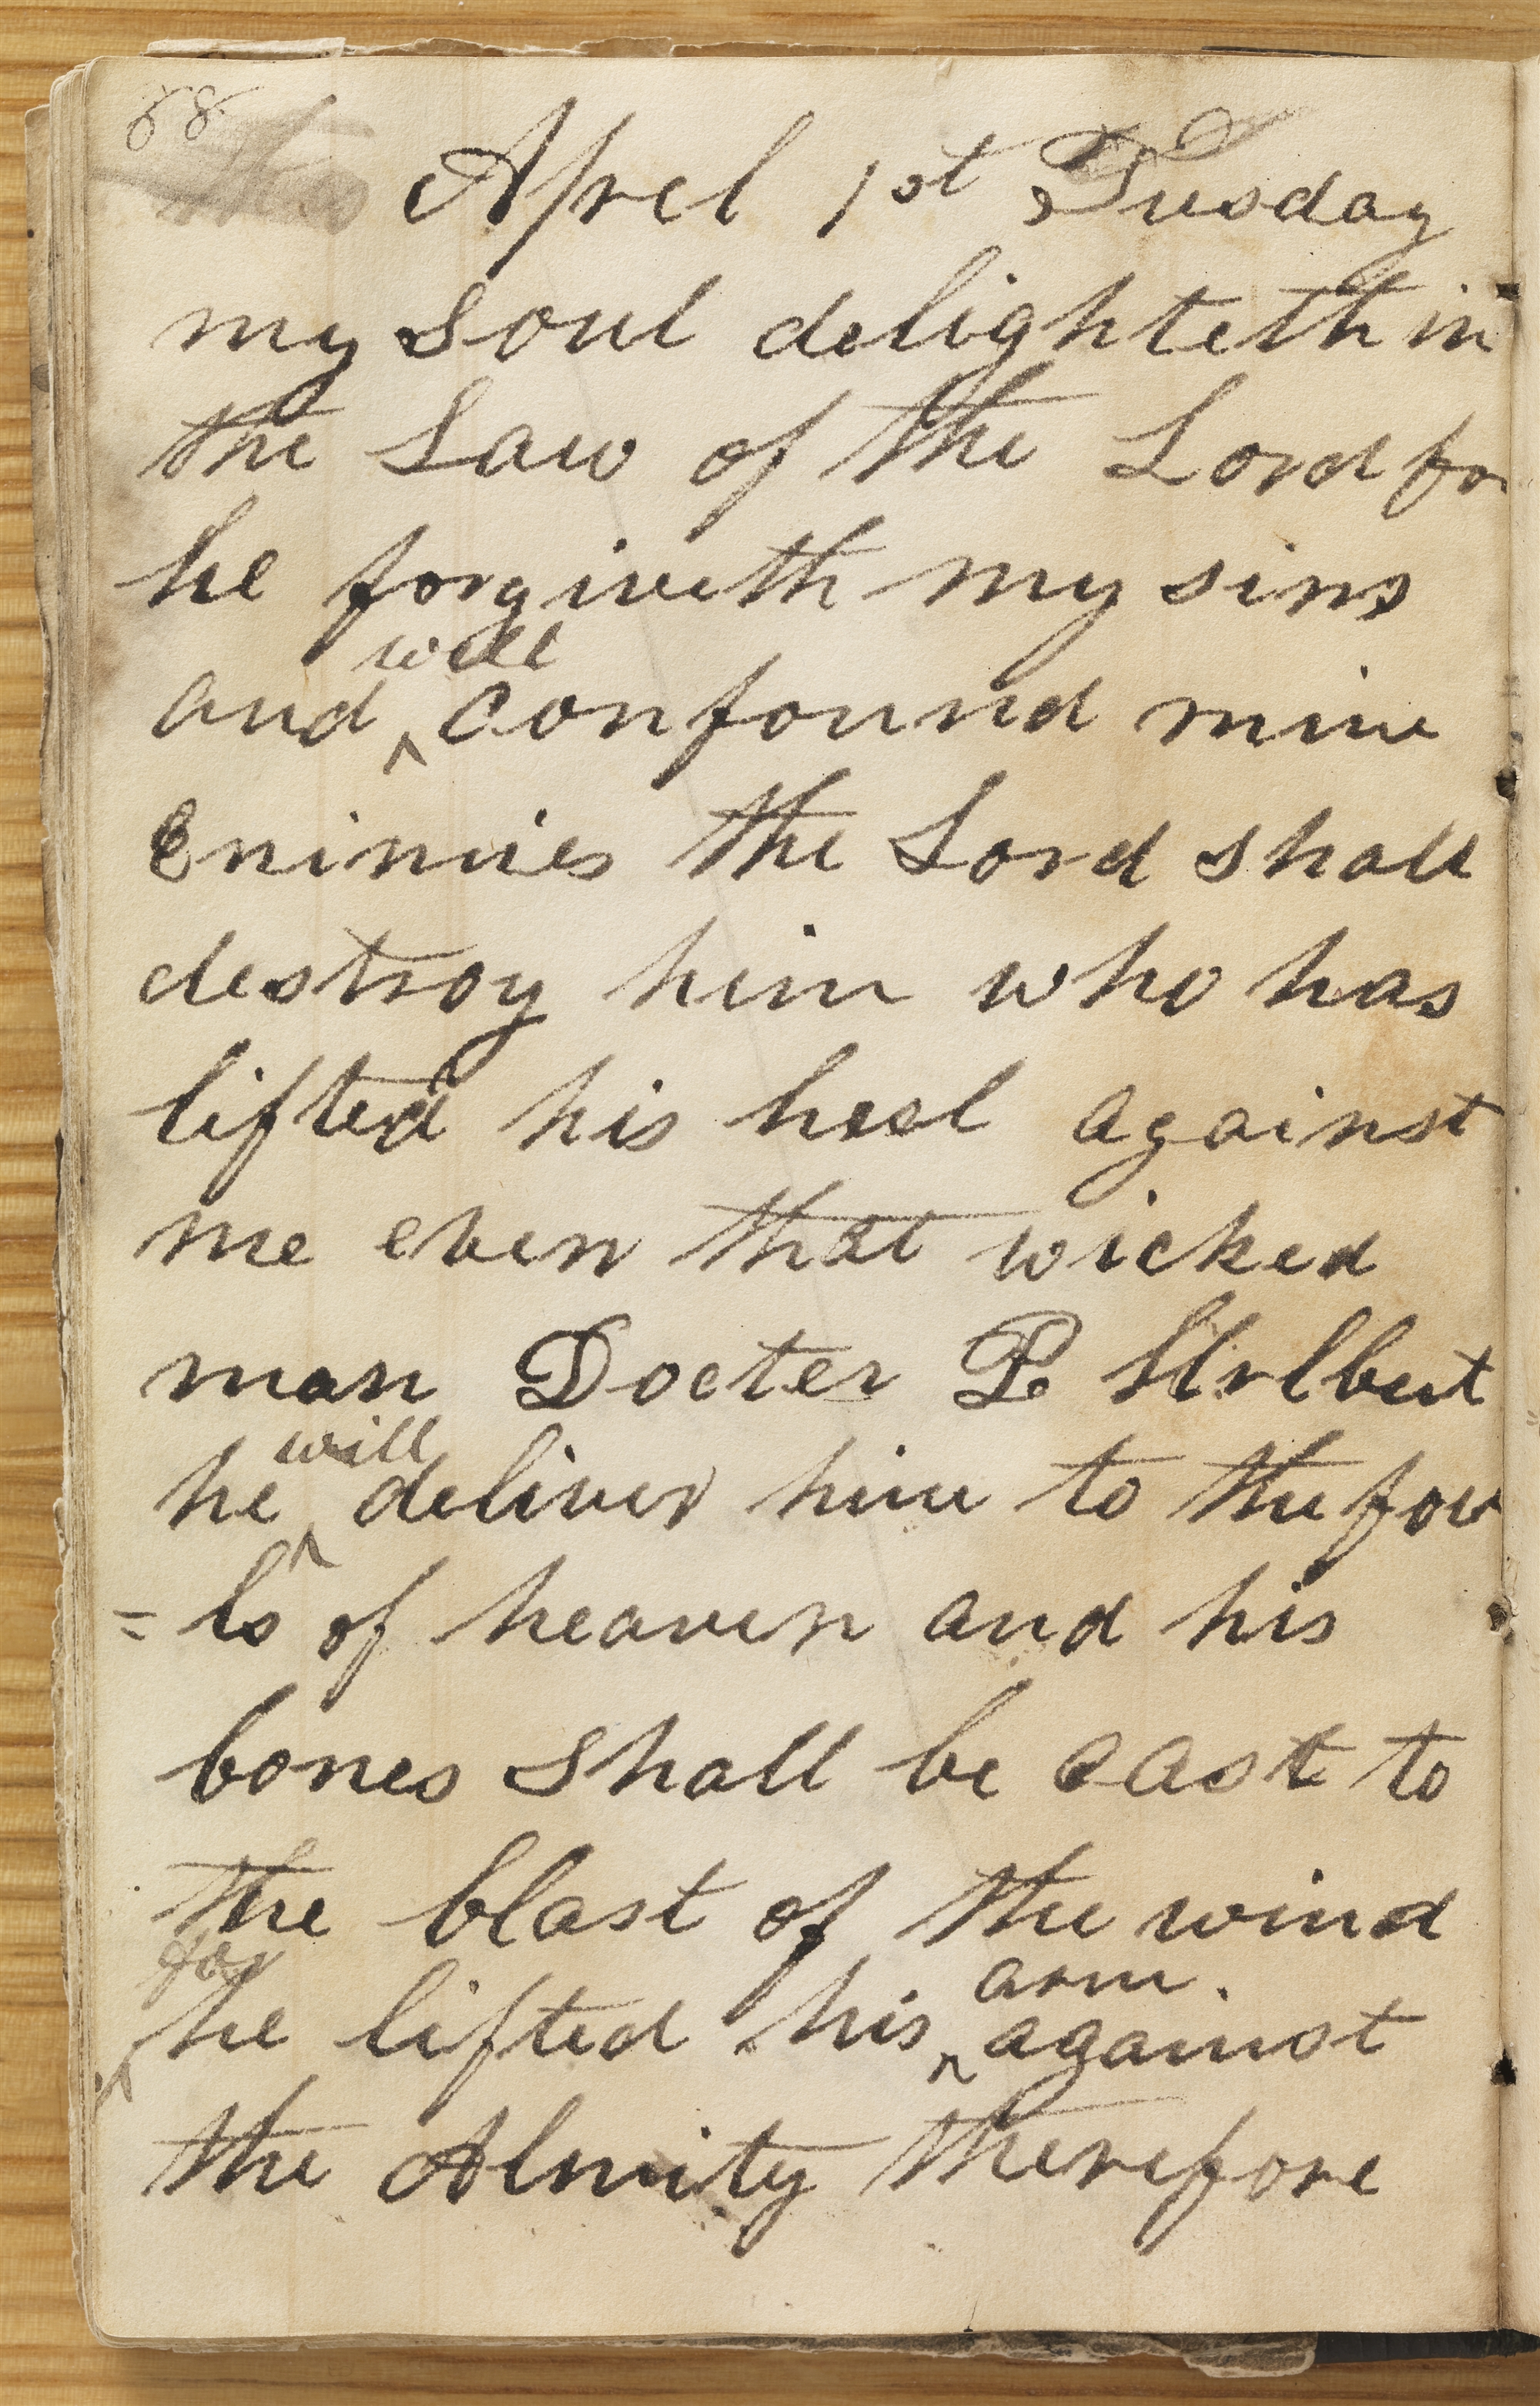 88
Aprel 1st Tusday
my Soul delighteth in
the Law of the Lord for
he forgiveth my sins
will
and ^ confound mine
Enimies the Lord shall
destroy him who has
lifted his heel against
me even that wicked
man Docter P. Hrlbut
will
he ^ deliver him to the fow
= ls of heaven and his
bones shall be cast to
the blast of the wind
for arm.
^ he lifted his ^ against
the Almity therefore